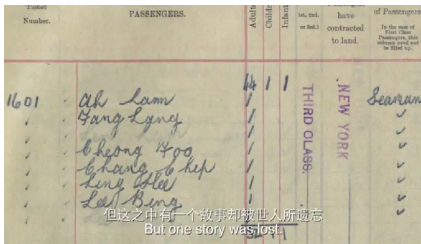 Ticket
Number.
PASSENGERS.
Adults
Infants
1st, 2nd,
or 3rd.)
have
contracted
to land.
of Passengers
In the case of
First Class
Passengers, this
column need not
be filled up.
44 1 1
1601 Ah Lam Seaman
Fang Lang
Cheong Foo
Chang Chip
Ling Hee
Lee Bing
THIRD CLASS.
NEW YORK
但这之中有一个故事却被世人所遗忘
But one story was lost.